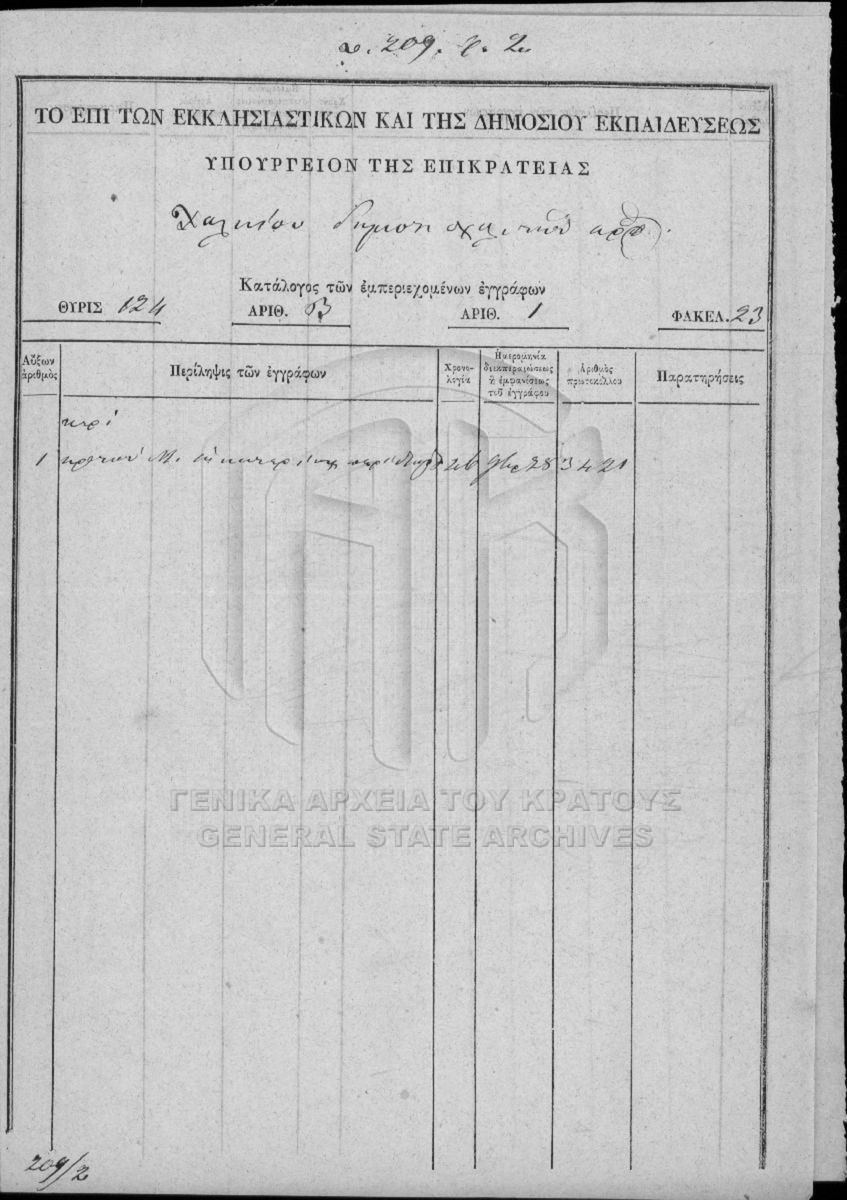 209. 2
ΤΟ ΕΠΙ ΤΩΝ ΕΚΚΛΗΣΙΑΣΤΙΚΩΝ ΚΑΙ ΤΗΣ ΔΗΜΟΣΙΟΥ ΕΚΠΑΙΔΕΥΣΕΩΣ
ΥΠΟΥΡΓΕΙΟΝ ΤΗΣ ΕΠΙΚΡΑΤΕΙΑΣ
Κατάλογος τῶν ἐμπεριεχομένων ἐγγράφων
ΘΥΡΙΣ 124 ΑΡΙΘ. Β ΑΡΙΘ. 1 ΦΑΚΕΛ. 23
Αὔξων ἀριθμὸς Περίληψις τῶν ἐγγράφων Χρονολογία Ἡμερομηνία διεκπεραιώσεως ἢ ἐμφανίσεως τοῦ ἐγγράφου Ἀριθμὸς πρωτοκόλλου Παρατηρήσεις
περὶ
1 28 3421
ΓΕΝΙΚΑ ΑΡΧΕΙΑ ΤΟΥ ΚΡΑΤΟΥΣ
GENERAL STATE ARCHIVES
209/2